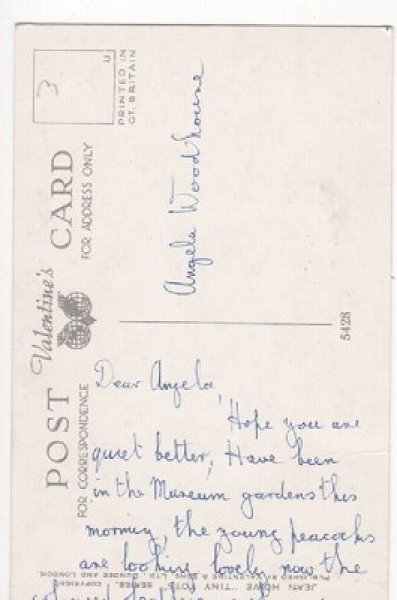 3
PRINTED IN
GT. BRITAIN
POST CARD
Valentine's
FOR CORRESPONDENCE
FOR ADDRESS ONLY
Angela Woodhouse
5428
Dear Angela,
Hope you are
quiet better, Have been
in the Museum gardens this
morning, the young peacocks
are looking lovely now the
JEAN HOWE "TINY TOTS" SERIES.
PUBLISHED BY VALENTINE & SONS LTD. DUNDEE AND LONDON